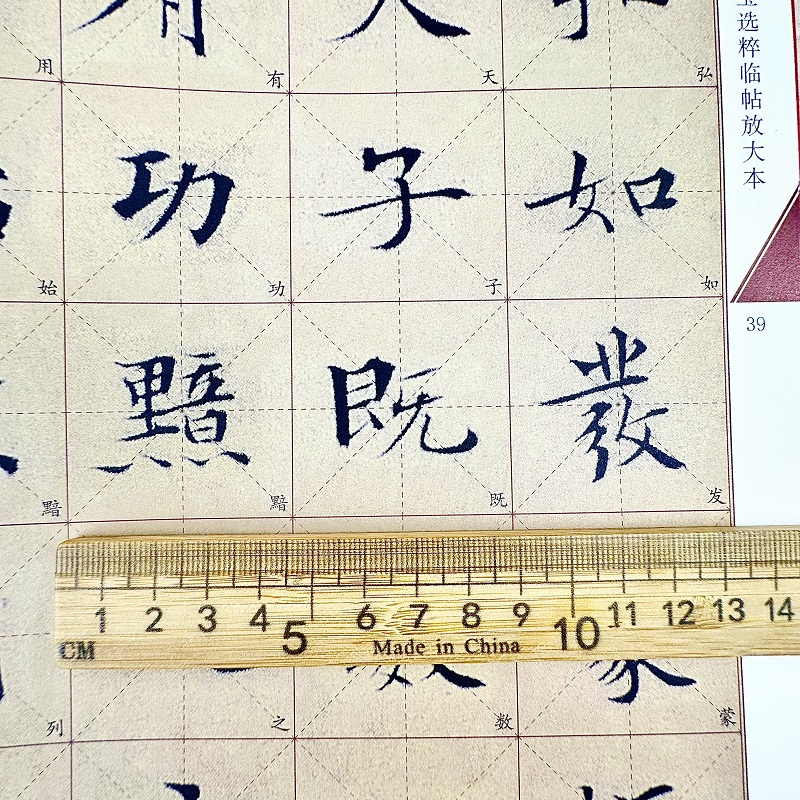 选粹临帖放大本
39
弘
天
有
用
如
如
子
子
功
功
始
發
发
既
既
黯
黯
黯
1 2 3 4 5 6 7 8 9 10 11 12 13 14
CM Made in China
蒙
数
之
列